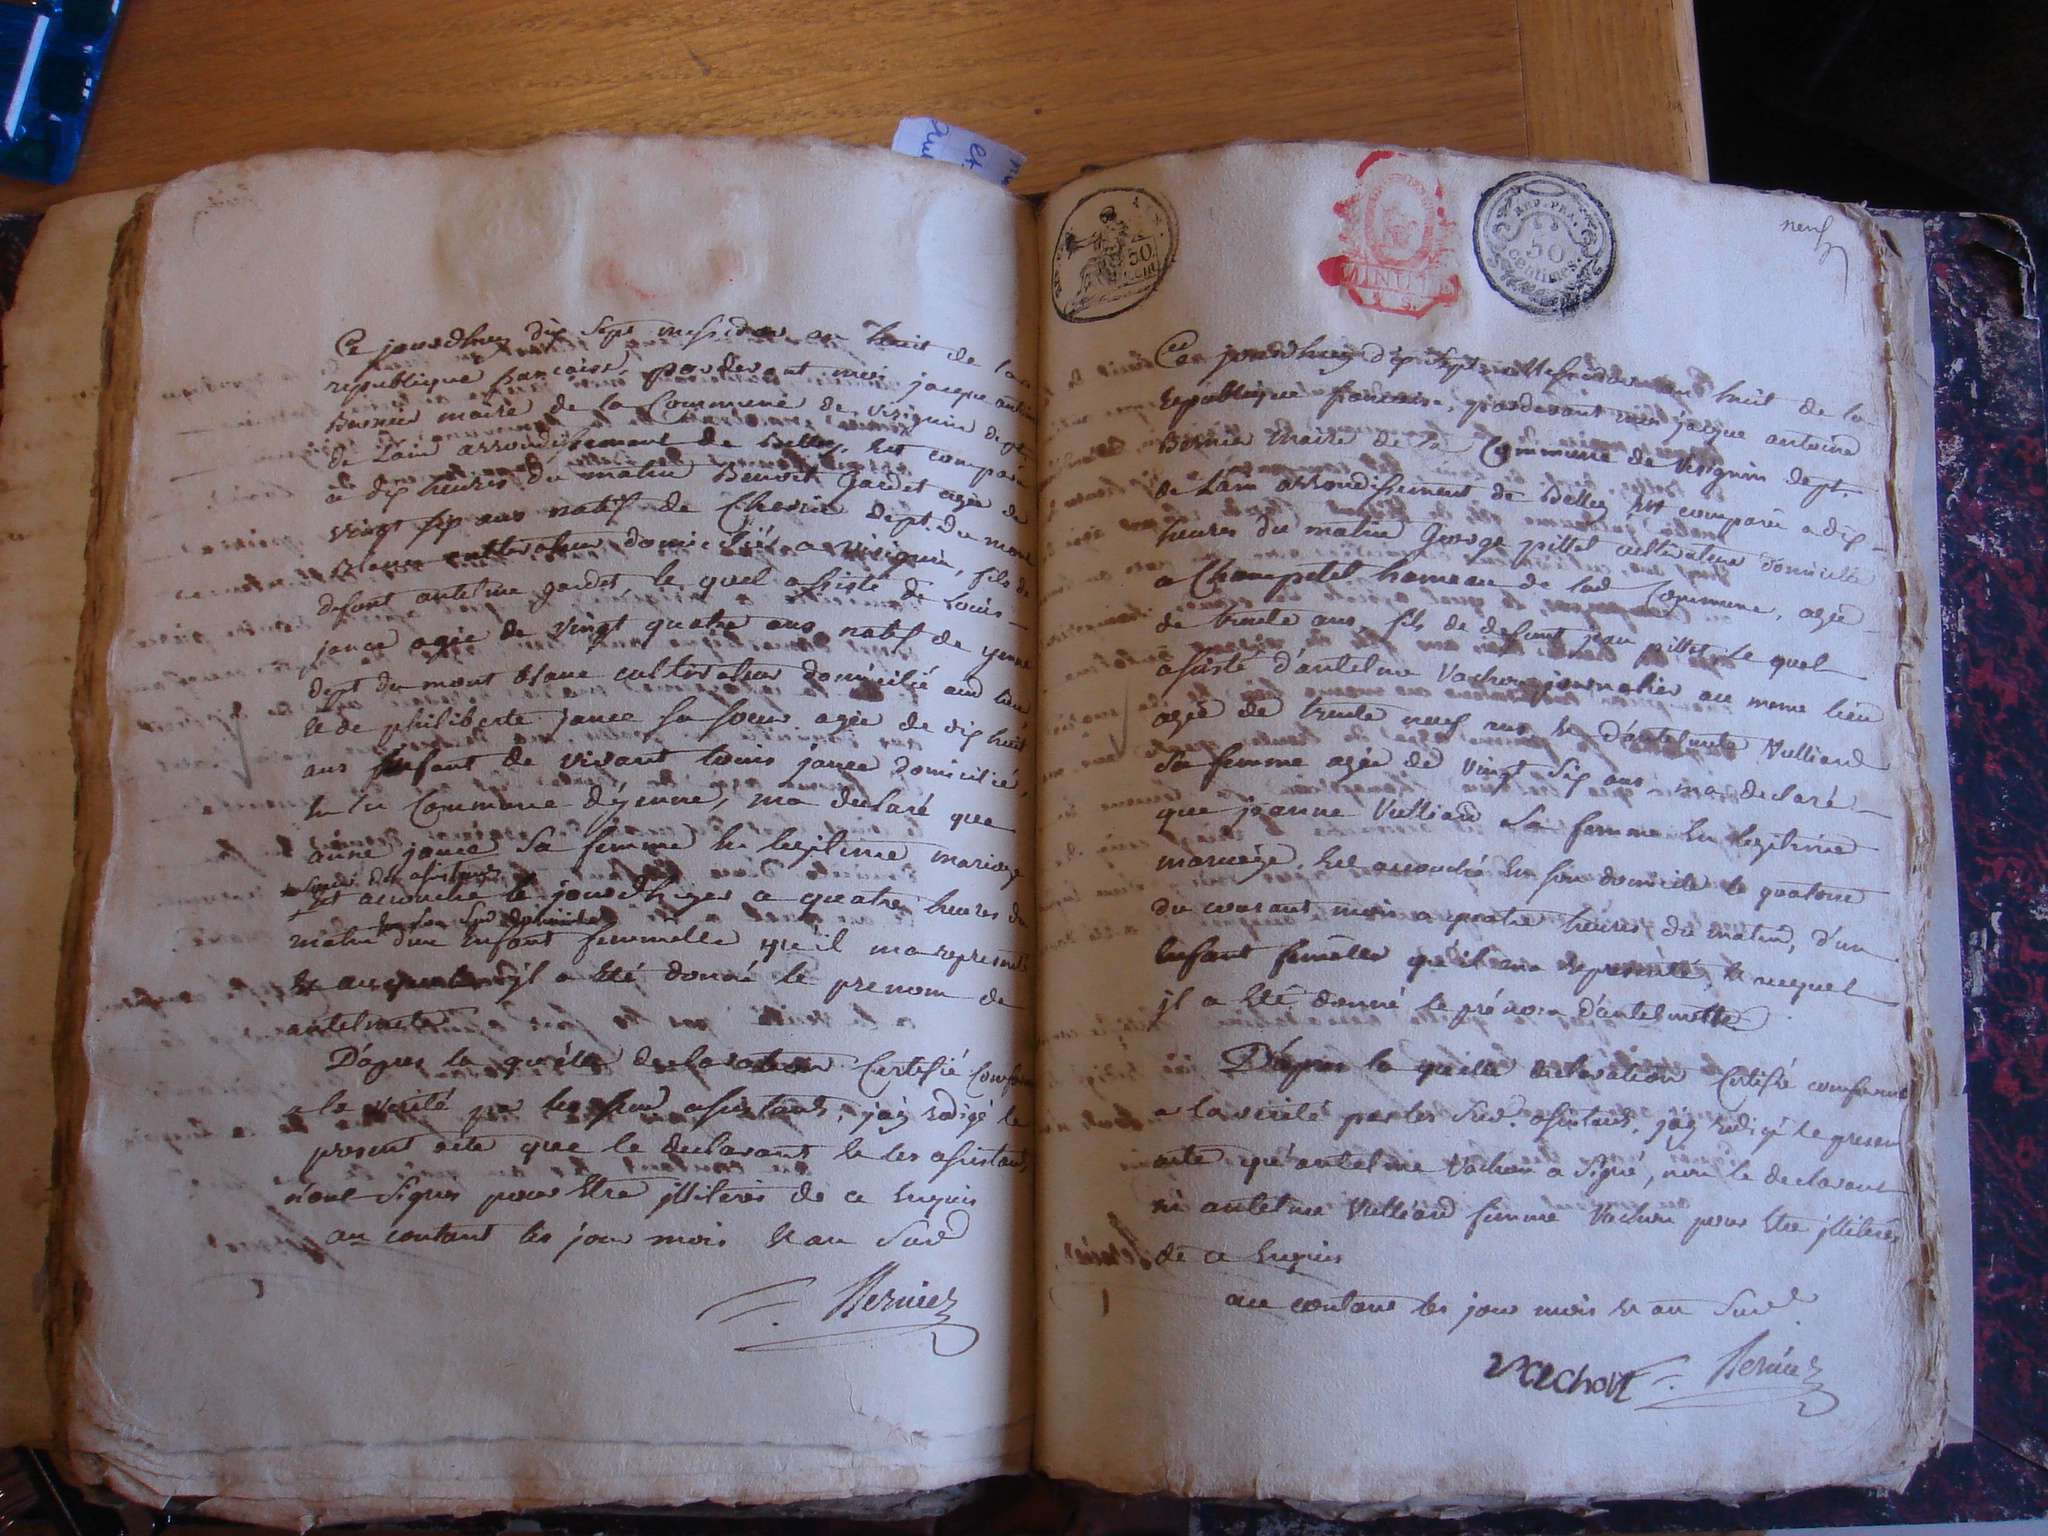 Ce jourdhuy dix sept messidor an huit de la
republique francaise, pardevant moi jacque antoine
Bernier maire de la Commune de virignin dept.
de Lain arrondissement de Belley, est comparu
a dix heures du matin Benoit Gardet agée de
vingt six ans natif de dept. du mont
blanc cultivateur domicilié a virignin, fils de
defunt antelme gardet le quel assisté de Louis
jance agée de vingt quatre ans natif de yenne
dept du mont blanc cultivateur domicilié aud lieu
et de philiberte jance sa soeur agée de dix huit
ans Enfant de vivant Louis jance domicilié
En la Commune d'yenne, ma declaré que
anne jance sa femme En legitime mariage
soeur des assistans
Est accouché le jourdhuyer a quatre heures du
En son susd domicile
matin d'un Enfant femmelle qu'il ma representé
Et auquel jl a Eté donné le prenom de
antelmette
D'apres la quelle declaration Certifié Conforme
a la verité par les susd assistants, j'ay redigé le
present acte que le declarant et les assistants
n'ont Signes pour Etre jlliterés de ce Enquis
au contant les jour mois et an Susd
Bernier
REP. FRA.
50
centimes
50
neuf
Ce jourdhuy dix sept Messidor an huit de la
Republique francaise, pardevant moi jacque antoine
Bernier Maire de la Commune de Virignin dept.
de Lain arrondissement de Belley Est comparu a dix
heures du matin George pillet cultivateur domicilié
a Champtel hameau de lad Commune, agée
de trente ans, fils de defunt jean pillet le quel
assisté d'antelme Vachon journalier au meme lieu
agée de trente neuf ans et d'antelmette Vulliard
Sa femme agée de vingt six ans, ma declaré
que jeanne Vulliard Sa femme En legitime
mariage, Est accouché En son domicile le quatorze
du courant mois a quatre heures du matin, d'un
Enfant femelle qu'il ma representé, Et auquel
jl a Eté donné le prénom d'antelmette
D'apres la quelle declaration Certifié conforme
a la verité par les Susd. assistants, j'ay redigé le present
acte qu'antelme Vachon a Signé, non le declarant
ni antelme Vulliard femme Vachon pour Etre jlliterés
de ce Enquis
au contant les jour mois et an Susd.
vachon
Bernier